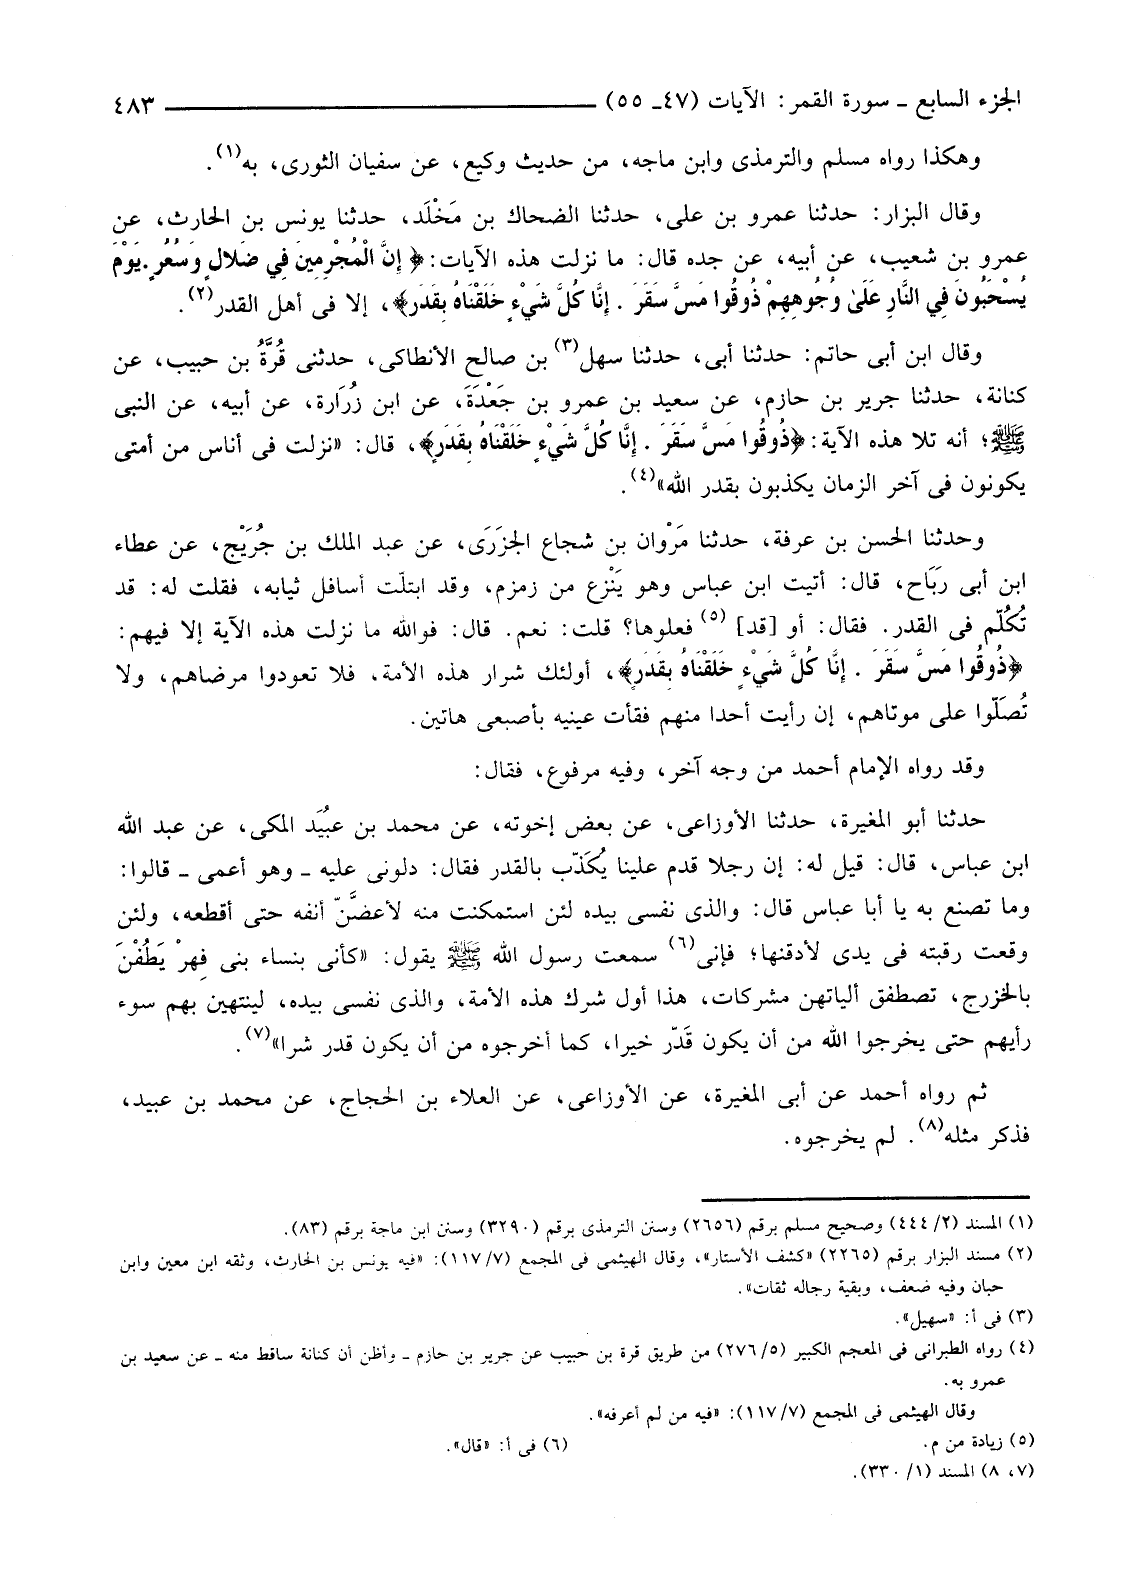 الجزء السابع ـ سورة القمر : الآيات (٤٧ـ ٥٥) ٤٨٣
وهكذا رواه مسلم والترمذى وابن ماجه، من حديث وكيع، عن سفيان الثورى، به(١).
وقال البزار: حدثنا عمرو بن على، حدثنا الضحاك بن مَخْلَد، حدثنا يونس بن الحارث، عن
عمرو بن شعيب، عن أبيه، عن جده قال: ما نزلت هذه الآيات: ﴿ إِنَّ الْمُجْرِمِينَ فِي ضَلالٍ وَسُعُرٍ . يَوْمَ
يُسْحَبُونَ فِي النَّارِ عَلَىٰ وُجُوهِهِمْ ذُوقُوا مَسَّ سَقَرَ . إِنَّا كُلَّ شَيْءٍ خَلَقْنَاهُ بِقَدَرٍ﴾، إلا فى أهل القدر(٢).
وقال ابن أبى حاتم: حدثنا أبى، حدثنا سهل(٣) بن صالح الأنطاكى، حدثنى قُرَّةُ بن حبيب، عن
كنانة، حدثنا جرير بن حازم، عن سعيد بن عمرو بن جَعْدَةَ، عن ابن زُرَارة، عن أبيه، عن النبى
ﷺ؛ أنه تلا هذه الآية: ﴿ذُوقُوا مَسَّ سَقَرَ . إِنَّا كُلَّ شَيْءٍ خَلَقْنَاهُ بِقَدَرٍ﴾، قال: «نزلت فى أناس من أمتى
يكونون فى آخر الزمان يكذبون بقدر الله»(٤).
وحدثنا الحسن بن عرفة، حدثنا مَرْوان بن شجاع الجزَرَى، عن عبد الملك بن جُرَيْج، عن عطاء
ابن أبى رَبَاح، قال: أتيت ابن عباس وهو يَنْزع من زمزم، وقد ابتلّت أسافل ثيابه، فقلت له: قد
تُكُلّم فى القدر. فقال: أو [قد] (٥) فعلوها؟ قلت: نعم. قال: فوالله ما نزلت هذه الآية إلا فيهم:
﴿ذُوقُوا مَسَّ سَقَرَ . إِنَّا كُلَّ شَيْءٍ خَلَقْنَاهُ بِقَدَرٍ﴾، أولئك شرار هذه الأمة، فلا تعودوا مرضاهم، ولا
تُصَلّوا على موتاهم، إن رأيت أحدا منهم فقأت عينيه بأصبعى هاتين.
وقد رواه الإمام أحمد من وجه آخر، وفيه مرفوع، فقال:
حدثنا أبو المغيرة، حدثنا الأوزاعى، عن بعض إخوته، عن محمد بن عبُيَد المكى، عن عبد الله
ابن عباس، قال: قيل له: إن رجلا قدم علينا يُكَذّب بالقدر فقال: دلونى عليه ـ وهو أعمى ـ قالوا:
وما تصنع به يا أبا عباس قال: والذى نفسى بيده لئن استمكنت منه لأعضَّنّ أنفه حتى أقطعه، ولئن
وقعت رقبته فى يدى لأدقنها؛ فإنى(٦) سمعت رسول الله ﷺ يقول: «كأنى بنساء بنى فِهرْ يَطُفْنَ
بالخزرج، تصطفق ألياتهن مشركات، هذا أول شرك هذه الأمة، والذى نفسى بيده، لينتهين بهم سوء
رأيهم حتى يخرجوا الله من أن يكون قَدّر خيرا، كما أخرجوه من أن يكون قدر شرا»(٧).
ثم رواه أحمد عن أبى المغيرة، عن الأوزاعى، عن العلاء بن الحجاج، عن محمد بن عبيد،
فذكر مثله(٨). لم يخرجوه.
(١) المسند (٢/ ٤٤٤) وصحيح مسلم برقم (٢٦٥٦) وسنن الترمذى برقم (٣٢٩٠) وسنن ابن ماجة برقم (٨٣).
(٢) مسند البزار برقم (٢٢٦٥) «كشف الأستار»، وقال الهيثمى فى المجمع (٧/ ١١٧): «فيه يونس بن الحارث، وثقه ابن معين وابن
حبان وفيه ضعف، وبقية رجاله ثقات».
(٣) فى أ: «سهيل».
(٤) رواه الطبرانى فى المعجم الكبير (٥/ ٢٧٦) من طريق قرة بن حبيب عن جرير بن حازم ـ وأظن أن كنانة ساقط منه ـ عن سعيد بن
عمرو به.
وقال الهيثمى فى المجمع (٧/ ١١٧): «فيه من لم أعرفه».
(٥) زيادة من م. (٦) فى أ: «قال».
(٧، ٨) المسند (١/ ٣٣٠).